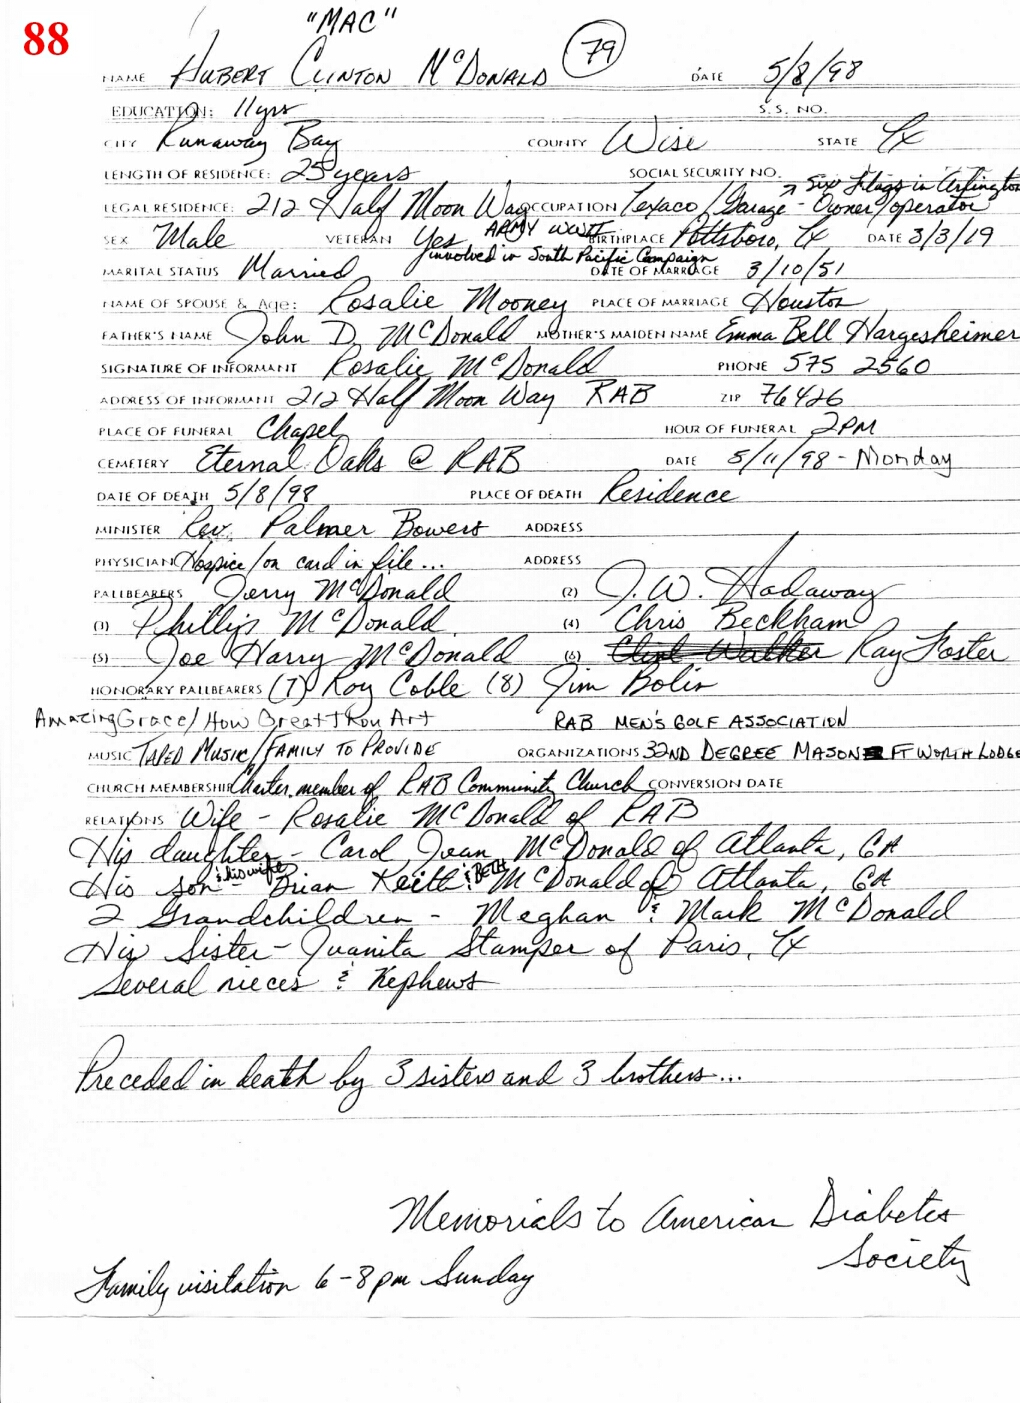 88
"MAC"
NAME Hubert Clinton McDonald 79 DATE 5/8/98
EDUCATION: 11yrs S.S. NO.
CITY Runaway Bay COUNTY Wise STATE Tx
LENGTH OF RESIDENCE: 25 years SOCIAL SECURITY NO. Six Flags in Arlington
LEGAL RESIDENCE: 212 Half Moon Way OCCUPATION Texaco/Garage - Owner/operator
SEX Male VETERAN Yes ARMY WWII BIRTHPLACE Pottsboro, Tx DATE 3/3/19
involved in South Pacific Campaign
MARITAL STATUS Married DATE OF MARRIAGE 3/10/51
NAME OF SPOUSE & Age: Rosalie Mooney PLACE OF MARRIAGE Houston
FATHER'S NAME John D. McDonald MOTHER'S MAIDEN NAME Emma Bell Hargesheimer
SIGNATURE OF INFORMANT Rosalie McDonald PHONE 575 2560
ADDRESS OF INFORMANT 212 Half Moon Way RAB ZIP 76426
PLACE OF FUNERAL Chapel HOUR OF FUNERAL 2PM
CEMETERY Eternal Oaks @ RAB DATE 5/11/98 - Monday
DATE OF DEATH 5/8/98 PLACE OF DEATH Residence
MINISTER Rev. Palmer Bowers ADDRESS
PHYSICIAN Hospice/on card in file... ADDRESS
PALLBEARERS Jerry McDonald (2) J.W. Hadaway
(3) Phillip McDonald (4) Chris Beckham
(5) Joe Harry McDonald (6) Clint Walker Ray Foster
HONORARY PALLBEARERS (7) Roy Coble (8) Jim Bolin
Amazing Grace/How Great Thou Art RAB MEN'S GOLF ASSOCIATION
MUSIC TAPED MUSIC/FAMILY TO PROVIDE ORGANIZATIONS 32ND DEGREE MASON FT WORTH LODGE
CHURCH MEMBERSHIP Charter member of RAB Community Church CONVERSION DATE
RELATIONS Wife - Rosalie McDonald of RAB
His daughter - Carol Jean McDonald of Atlanta, GA
His son & his wife - Brian Keith & BETH McDonald of Atlanta, GA
2 Grandchildren - Meghan & Mark McDonald
His Sister - Juanita Stamper of Paris, Tx
Several nieces & Nephews
Preceded in death by 3 sisters and 3 brothers...
Memorials to American Diabetes
Society
Family visitation 6-8pm Sunday